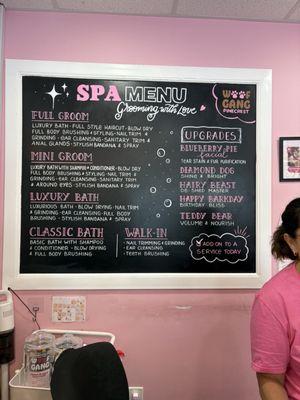 SPA MENU
Grooming with Love
WOOF
GANG
PINECREST
FULL GROOM
LUXURY BATH • FULL STYLE HAIRCUT • BLOW DRY
FULL BODY BRUSHING & STYLING • NAIL TRIM
& GRINDING • EAR CLEANSING • SANITARY TRIM &
ANAL GLANDS • STYLISH BANDANA & SPRAY
MINI GROOM
LUXURY BATH WITH SHAMPOO & CONDITIONER • BLOW DRY
FULL BODY BRUSHING & STYLING • NAIL TRIM &
GRINDING • EAR CLEANSING • SANITARY TRIM
& AROUND EYES • STYLISH BANDANA & SPRAY
LUXURY BATH
LUXURIOUS BATH • BLOW DRYING • NAIL TRIM
& GRINDING • EAR CLEANSING • FULL BODY
BRUSHING • STYLISH BANDANA & SPRAY
CLASSIC BATH
BASIC BATH WITH SHAMPOO
& CONDITIONER • BLOW DRYING
& FULL BODY BRUSHING
WALK-IN
• NAIL TRIMMING & GRINDING
• EAR CLEANSING
• TEETH BRUSHING
UPGRADES
BLUEBERRY PIE
facial
TEAR STAIN & FUR PURIFICATION
DIAMOND DOG
SHINE & BRIGHT
HAIRY BEAST
DE-SHED MASTER
HAPPY BARKDAY
BIRTHDAY BLISS
TEDDY BEAR
VOLUME & NOURISH
ADD ON TO A
SERVICE TODAY
GANG